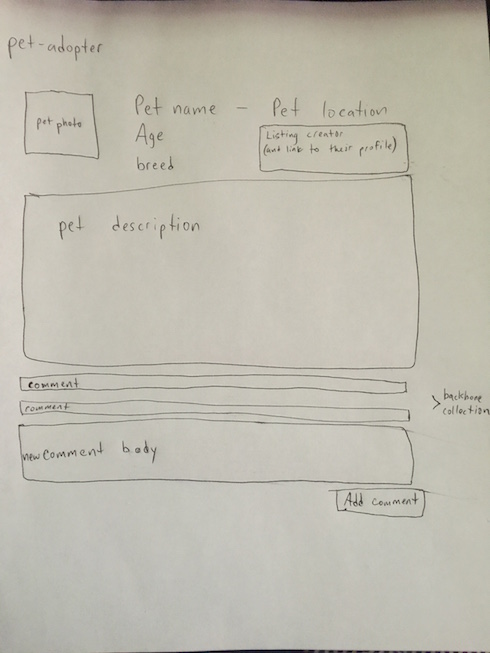 pet-adopter
pet photo
Pet name - Pet location
Age
breed
Listing creator
(and link to their profile)
pet description
comment
comment
backbone
collection
new comment body
Add comment